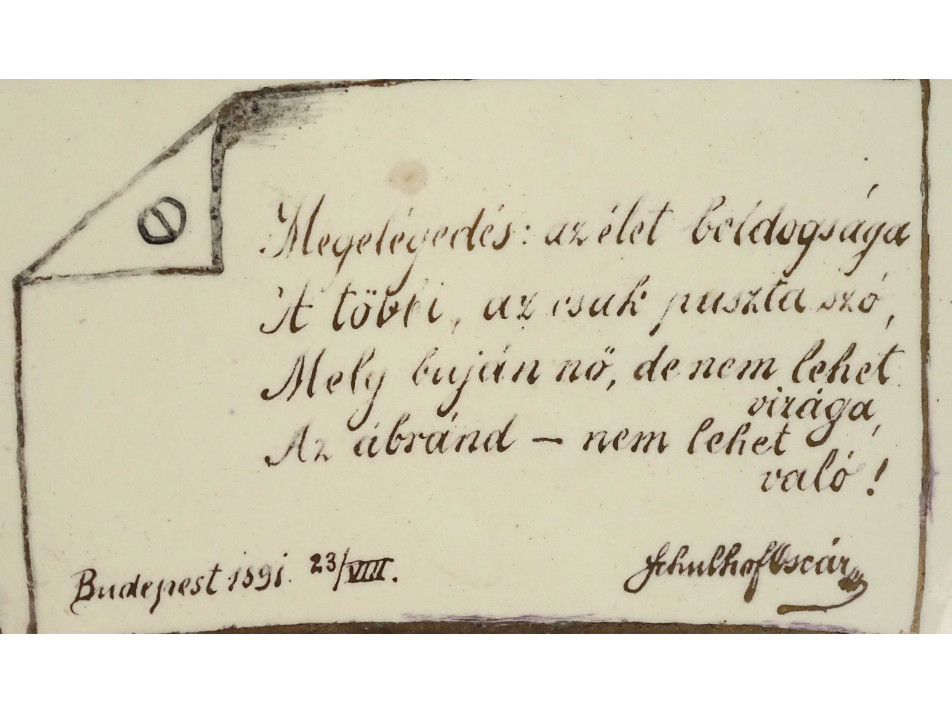 Megelégedés: az élet boldogsága
A többi, az csak puszta szó,
Mely buján nő, de nem lehet
virága,
Az ábránd – nem lehet
való!
Budapest 1891. 23/VIII.
Schulhof Oscár